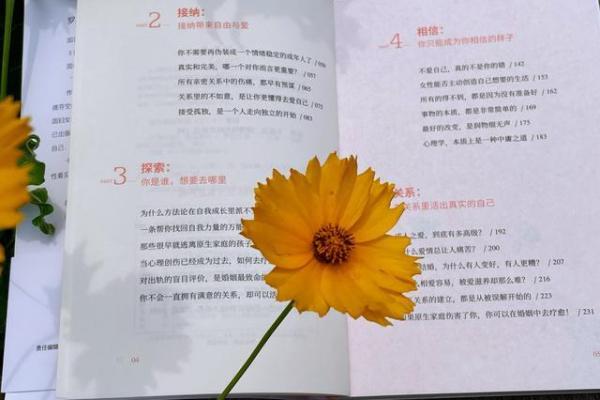 PART 2 接纳：
接纳带来自由与爱
你不需要再伪装成一个情绪稳定的成年人了 / 056
真实和完美，哪一个对你而言更重要？ / 057
所有亲密关系中的伤痛，都早有预谋 / 065
关系里的不如意，是让你更懂得去爱自己 / 075
接受孤独，是一个人走向独立的开始 / 083
PART 3 探索：
你是谁，想要去哪里
为什么方法论在自我成长里派不
一条帮你找回自我力量的万
那些很早就逃离原生家庭的
当心理创伤已经成为过去，如何去
对出轨的盲目评价，是婚姻最致命
你不会一直拥有满意的关系，却可以活
04
PART 4 相信：
你只能成为你相信的样子
不爱自己，真的不是你的错 / 142
女性能否主动创造自己想要的生活 / 153
所有的得不到，都是因为没有准备好 / 162
事物的本质，都是非常简单的 / 169
最好的改变，是润物细无声 / 175
心理学，本质上是一种中庸之道 / 183
关系：
关系里活出真实的自己
之爱，到底有多高级？ / 192
么爱情总让人痛苦？ / 200
结婚，为什么有人变好，有人更糟？ / 207
相容易，被爱滋养却那么难？ / 216
关系的建立，都是从被误解开始的 / 223
果原生家庭伤害了你，你可以在婚姻中去疗愈！ / 231
05
责任编辑